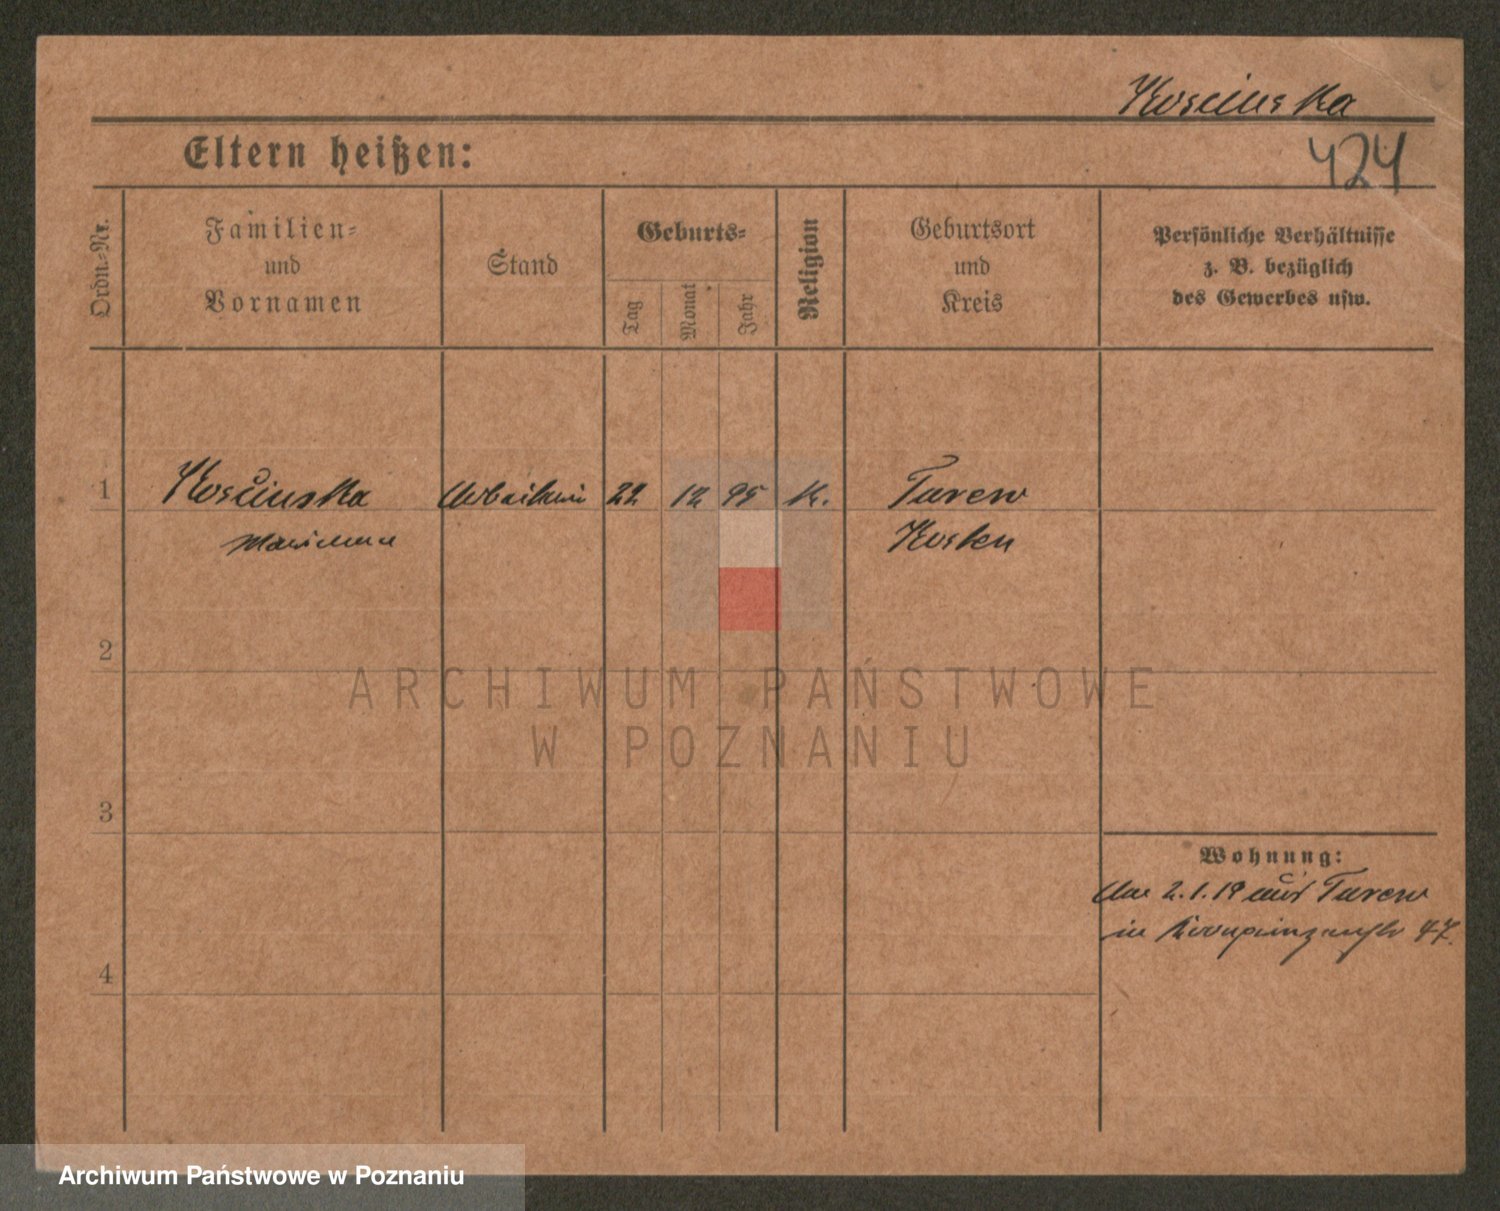 Kosciuska
424
Eltern heißen:
Ordn.-Nr.
Familien-
und
Vornamen
Stand
Geburts-
Tag
Monat
Jahr
Religion
Geburtsort
und
Kreis
Persönliche Verhältnisse
z. B. bezüglich
des Gewerbes usw.
1 Kosciuska Arbeiterin 22 12 95 K. Turew
Marianna Kosten
2
ARCHIWUM PAŃSTWOWE
W POZNANIU
3
Wohnung:
2.1.19 aus Turew
in 47.
4
Archiwum Państwowe w Poznaniu